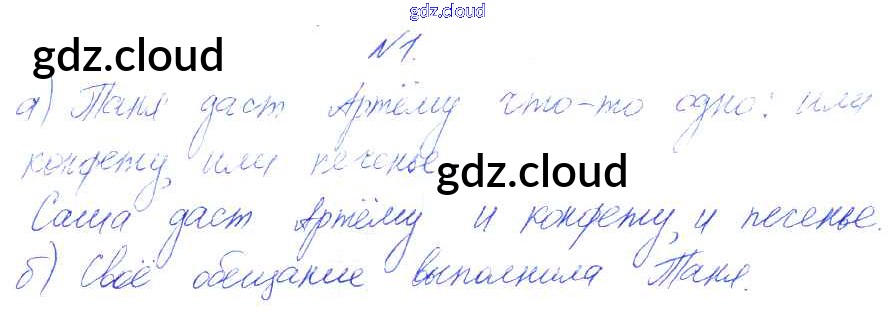 gdz.cloud
№1.
gdz.cloud
а) Таня даст Артёму что-то одно: или
конфету, или печенье
gdz.cloud
Саша даст Артёму и конфету, и печенье.
б) Своё обещание выполнила Таня.